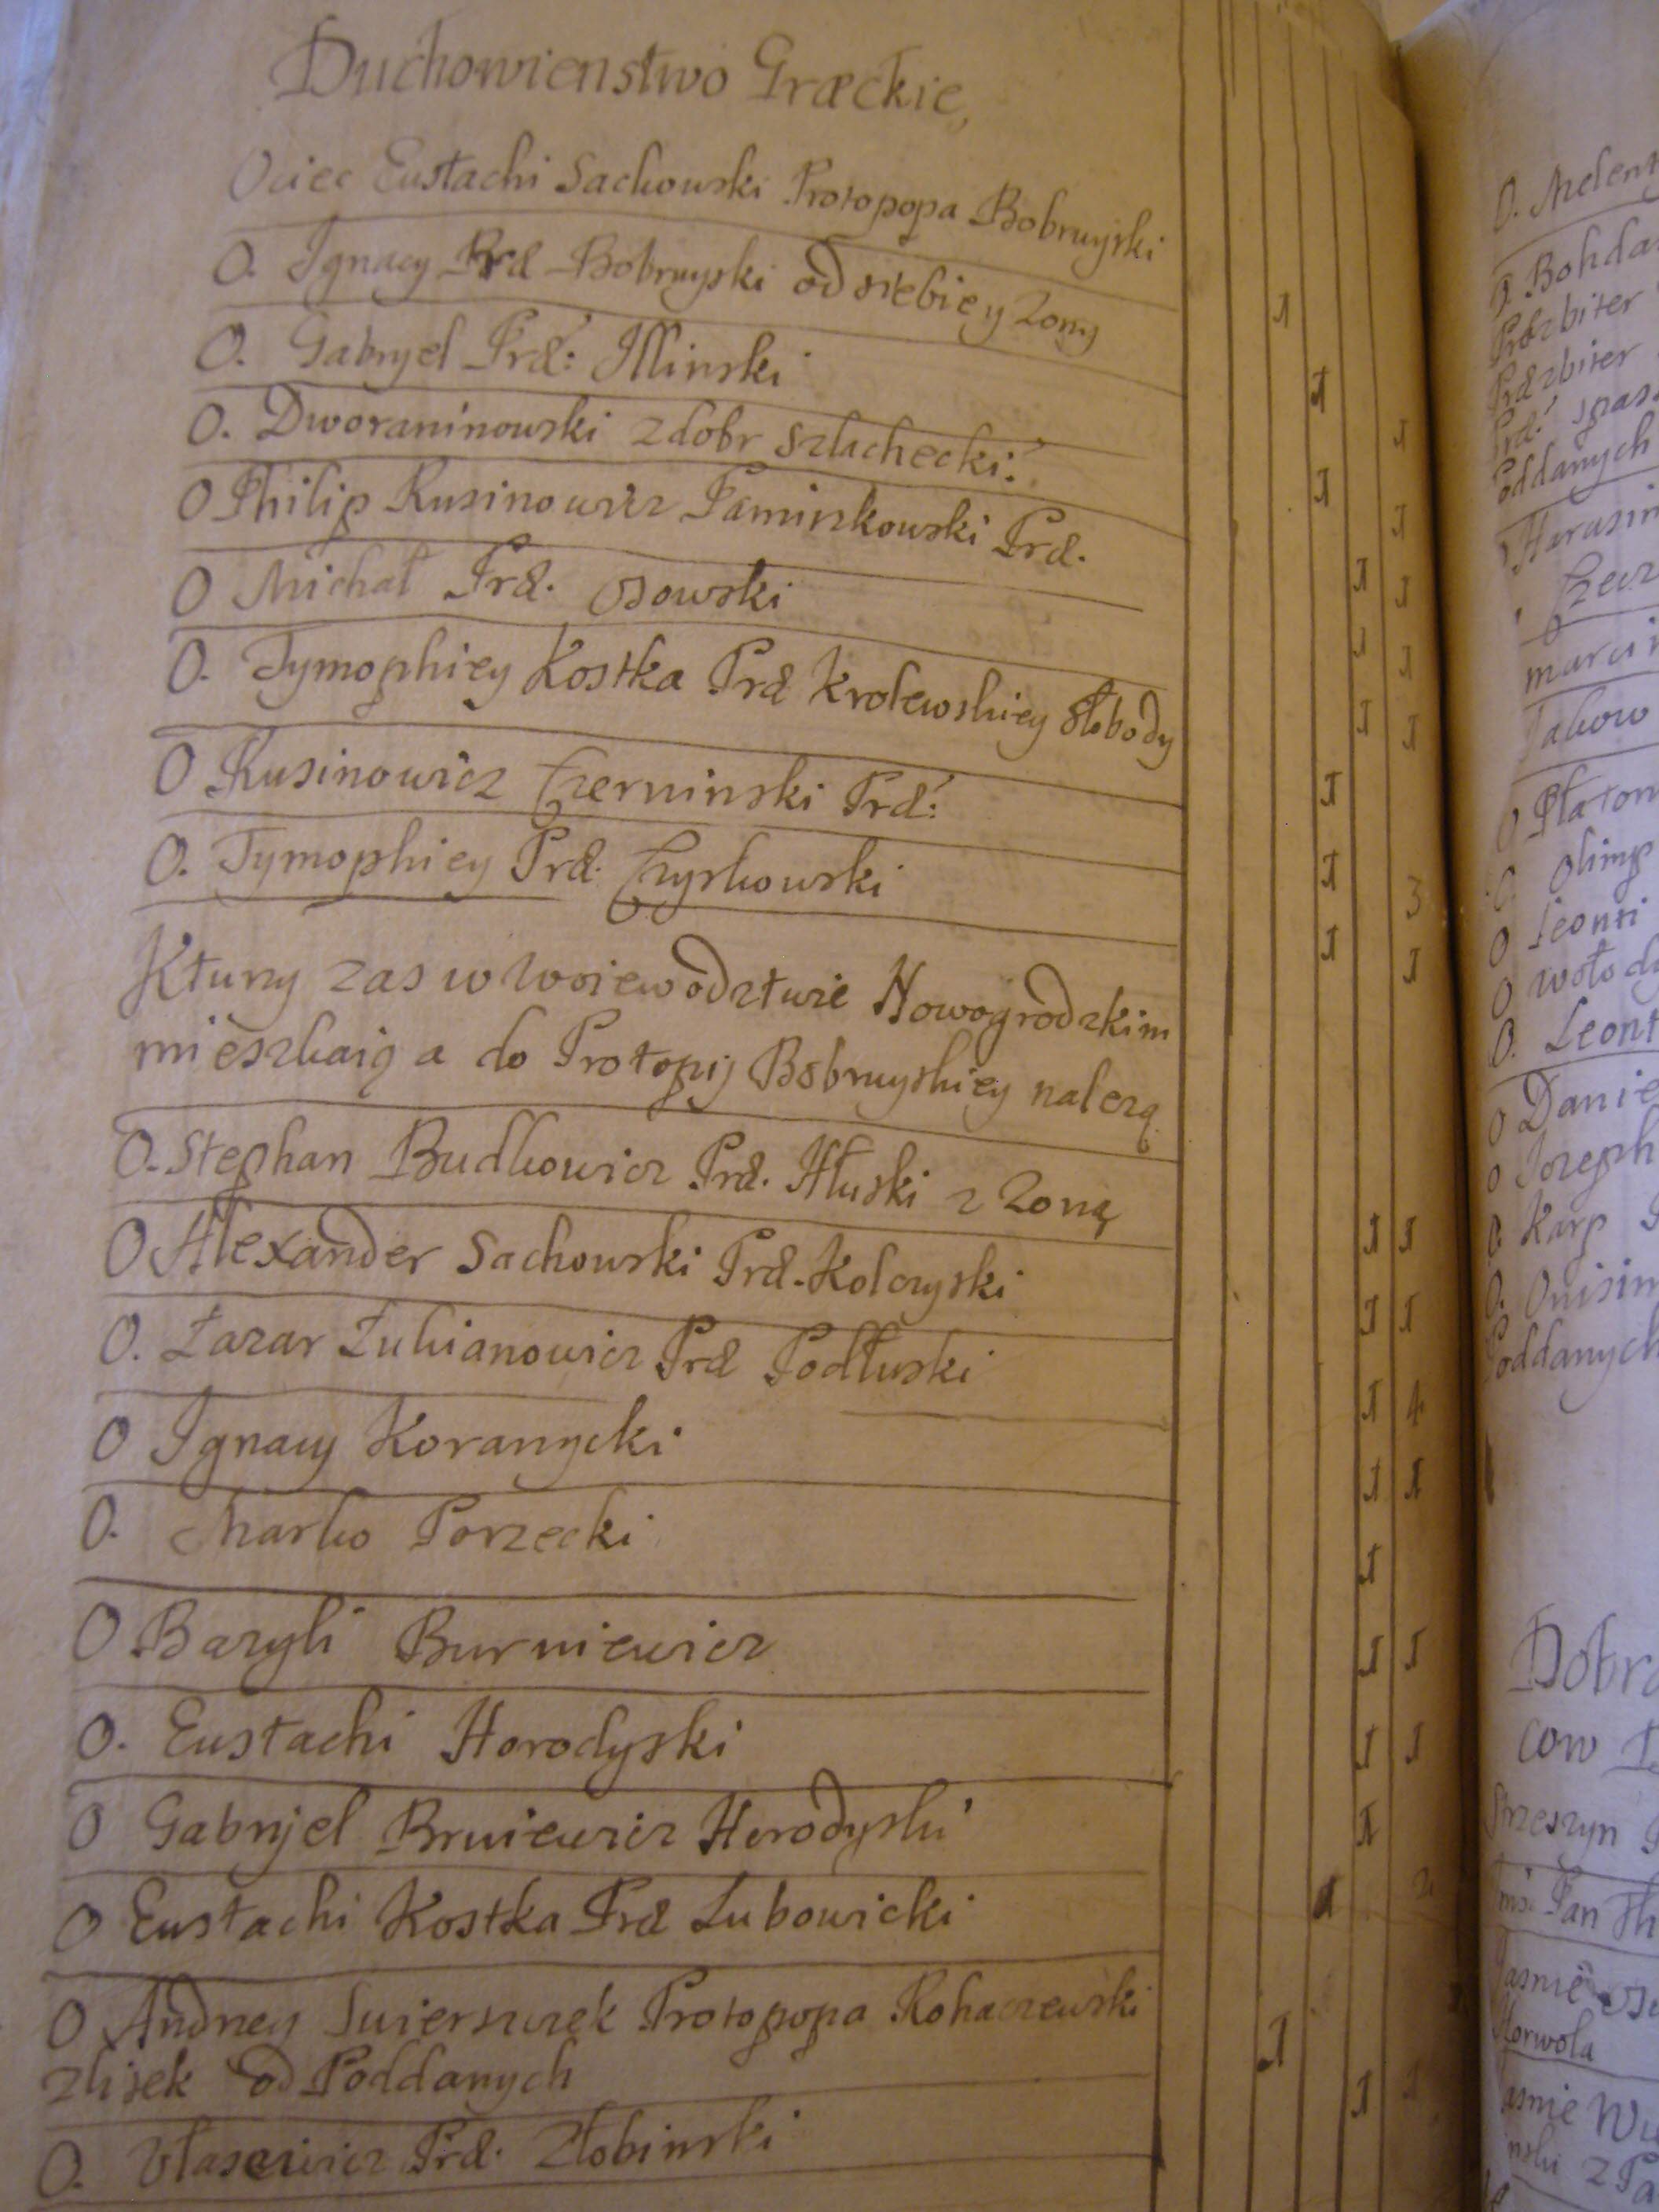 Duchowienstwo Græckie,
Ociec Eustachi Sachowski Protopopa Bobruyski
O. Ignacy Præ Bobruyski od siebie y Zony
O. Gabryel Præ: Illinski
O. Dworaninowski z dobr szlachecki:
O Philip Rusinowicz Paminkowski Præ.
O Michał Præ. Osowski
O. Tymophiey Kostka Præ Krolewskiey słobody
O Rusinowicz Czerninski Præ:
O. Tymophiey Præ. Czyrkowski
Ktury zas w Woiewodztwie Nowogrodzkim
mieszkaią a do Protopij Bobruyskiey nalezą
O. Stephan Budkowicz Præ. Hłuski z Zoną
O Alexander Sachowski Præ. Kolczyski
O. Łazar Łukianowicz Præ Podłuski
O Ignacy Koranycki
O. Marko Porzecki
O Bazyli Burniewicz
O. Eustachi Horodyski
O Gabryel Bruiewicz Horodyski
O Eustachi Kostka Præ Lubowicki
O Andrzey Protopopa Rohaczewski
od Poddanych
O. Własowicz Præ. Złobinski
O. Melen
O. Bohda
Præzbiter
Præzbiter
Præ:
Poddanych
Harasim
marci
Jakow
O Platon
O Olimp
O Leonti
O Wołod
O. Leont
O Danie
O Jozeph
O Karp
O. Onisim
Poddanych
Dobra
cow
Pan
Horwola